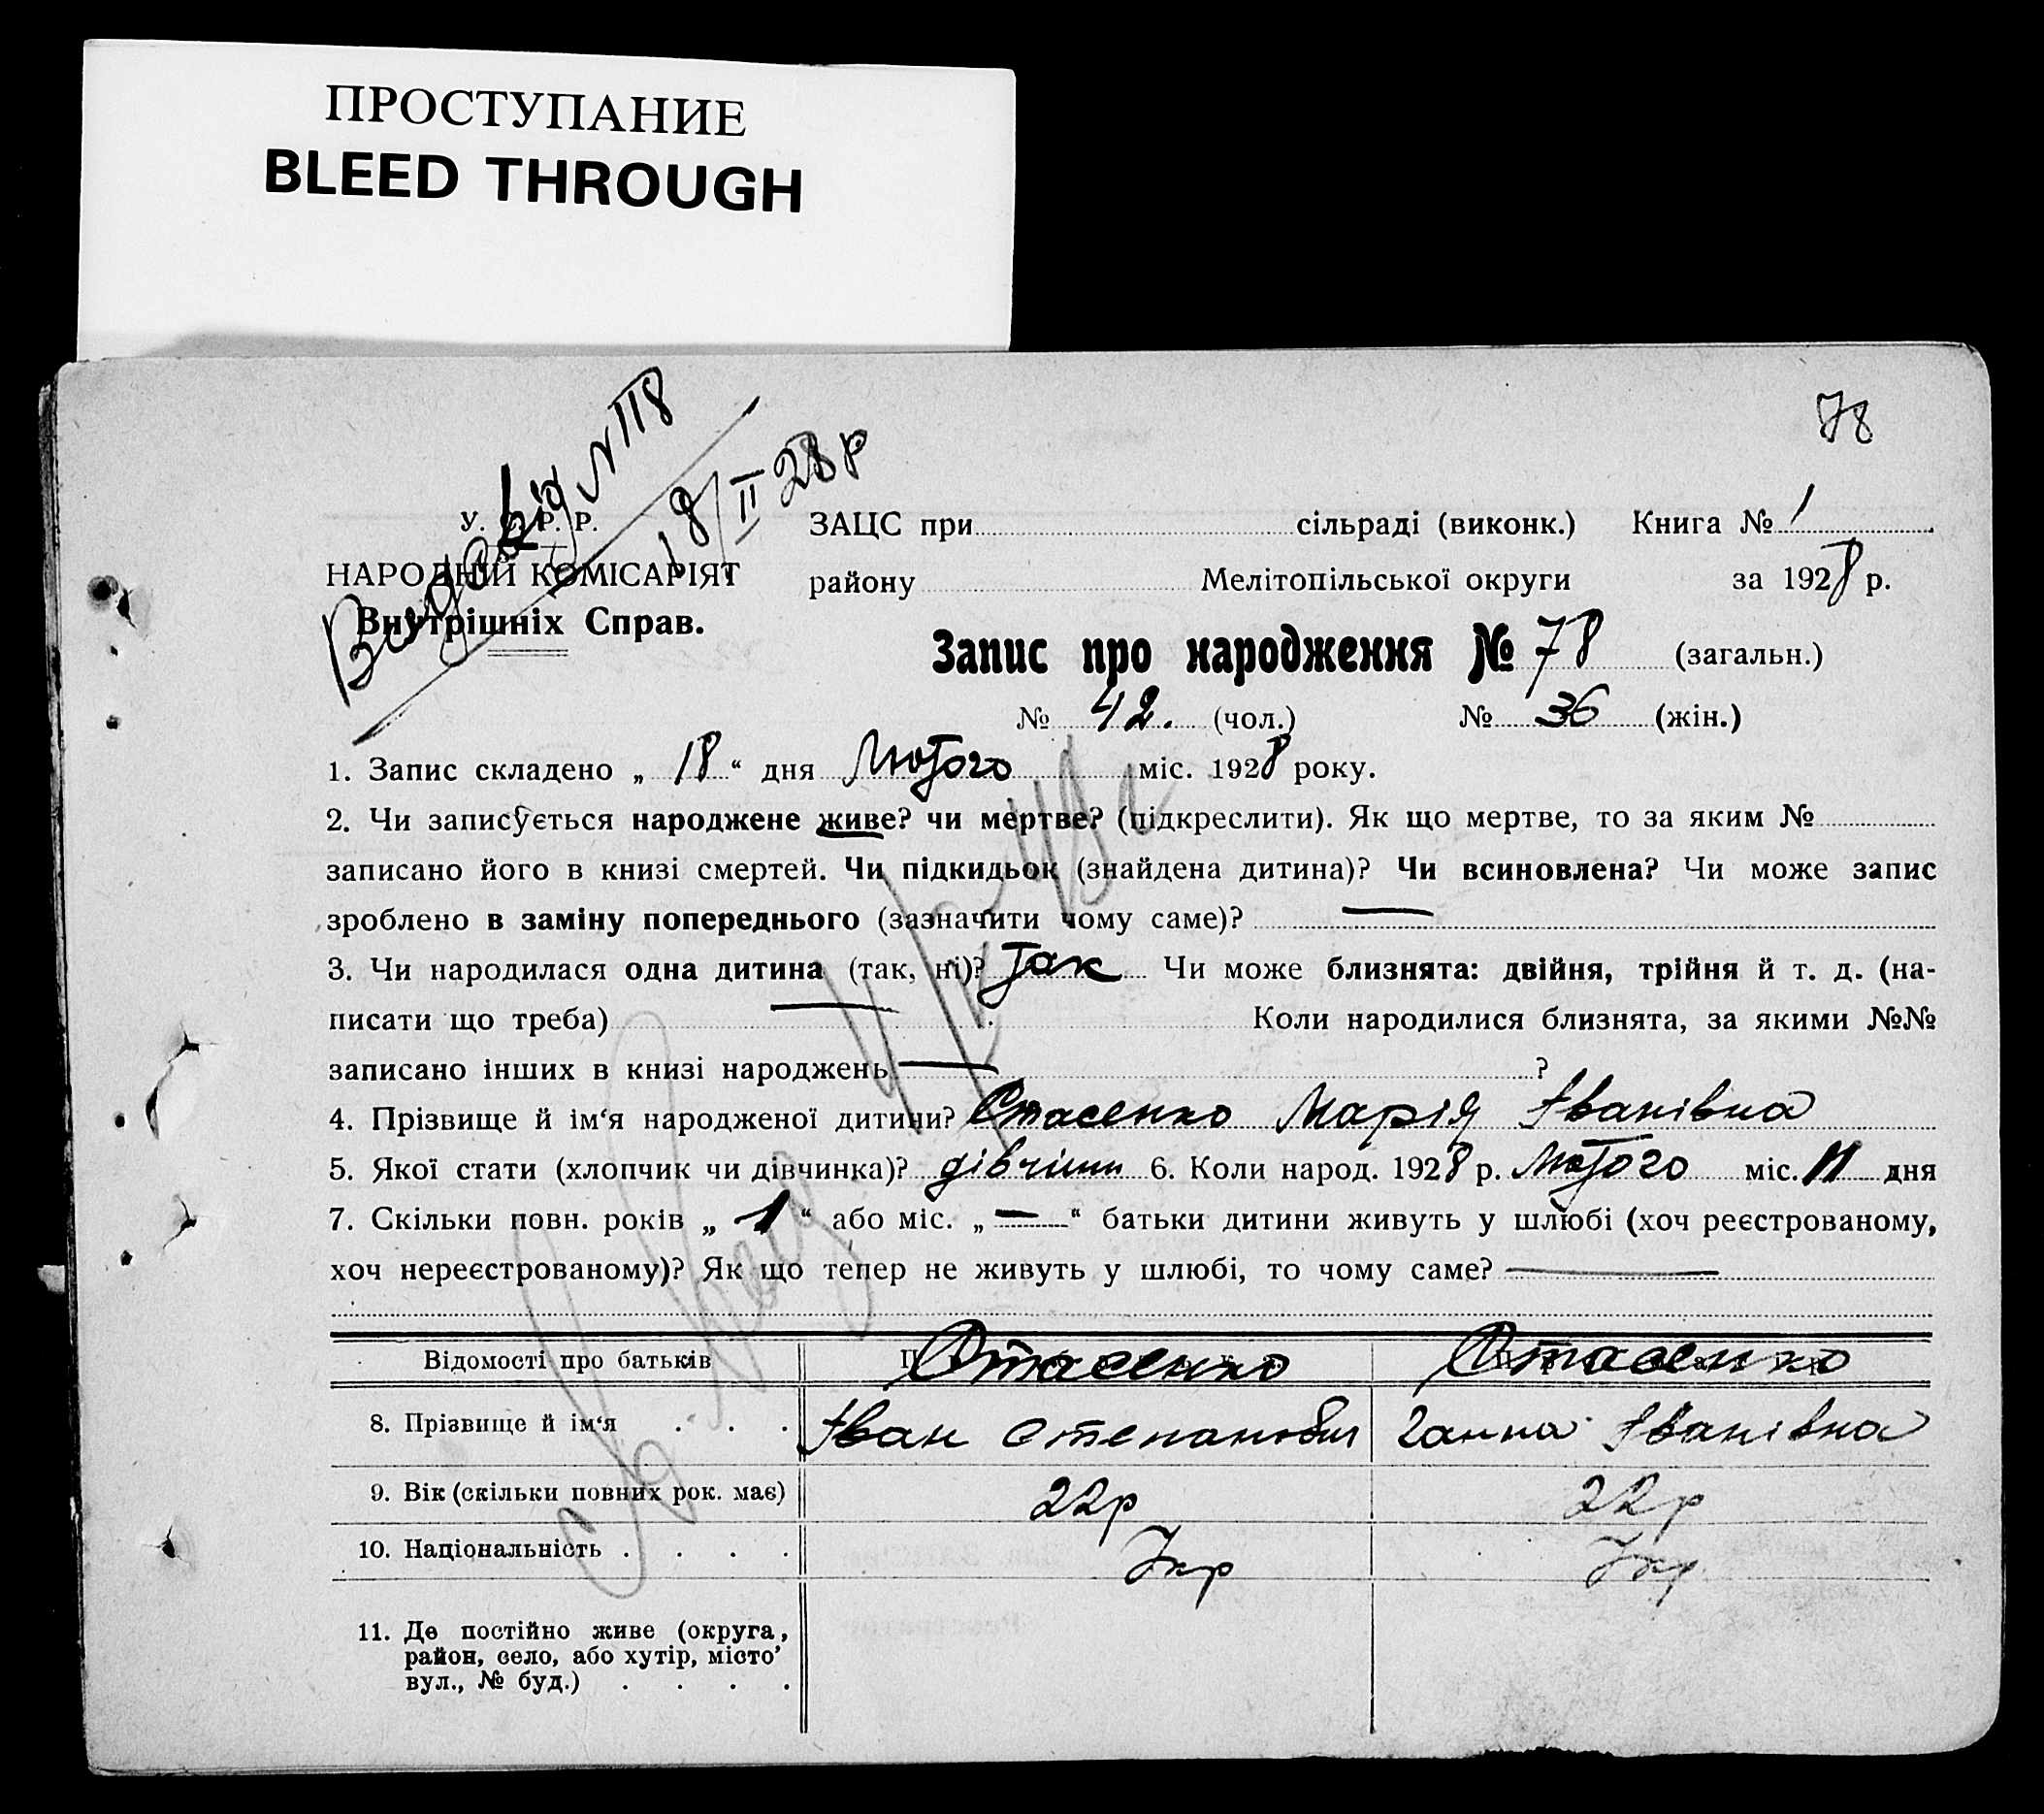 ПРОСТУПАНИЕ
BLEED THROUGH
78
Видa від N 118
18/II 28 р
У. С. Р. Р.
НАРОДНІЙ КОМІСАРІЯТ
Внутрішніх Справ.
ЗАЦС при сільраді (виконк.) Книга № 1
району Мелітопільської округи за 1928 р.
Запис про народження № 78 (загальн.)
№ 42. (чол.) № 36 (жін.)
1. Запис складено „ 18 “ дня Лютого міс. 1928 року.
2. Чи записується народжене живе? чи мертве? (підкреслити). Як що мертве, то за яким №
записано його в книзі смертей. Чи підкидьок (знайдена дитина)? Чи всиновлена? Чи може запис
зроблено в заміну попереднього (зазначити чому саме)? —
3. Чи народилася одна дитина (так, ні)? Так Чи може близнята: двійня, трійня й т. д. (на-
писати що треба) — Коли народилися близнята, за якими №№
записано інших в книзі народжень — ?
4. Прізвище й ім‘я народженої дитини? Стасенко Марія Іванівна
5. Якої стати (хлопчик чи дівчинка)? дівчінк 6. Коли народ. 1928 р. Лютого міс. 11 дня
7. Скільки повн. років „ 1 “ або міс. „ — “ батьки дитини живуть у шлюбі (хоч реєстрованому,
хоч нереєстрованому)? Як що тепер не живуть у шлюбі, то чому саме? —
Відомості про батьків Стасенко Стасенко
8. Прізвище й ім‘я . . . Іван Степанович Ганна Іванівна
9. Вік (скільки повних рок. має) 22р 22р
10. Національність . . . . Укр Укр
11. Де постійно живе (округа,
район, село, або хутір, місто’
вул., № буд.) . . . .